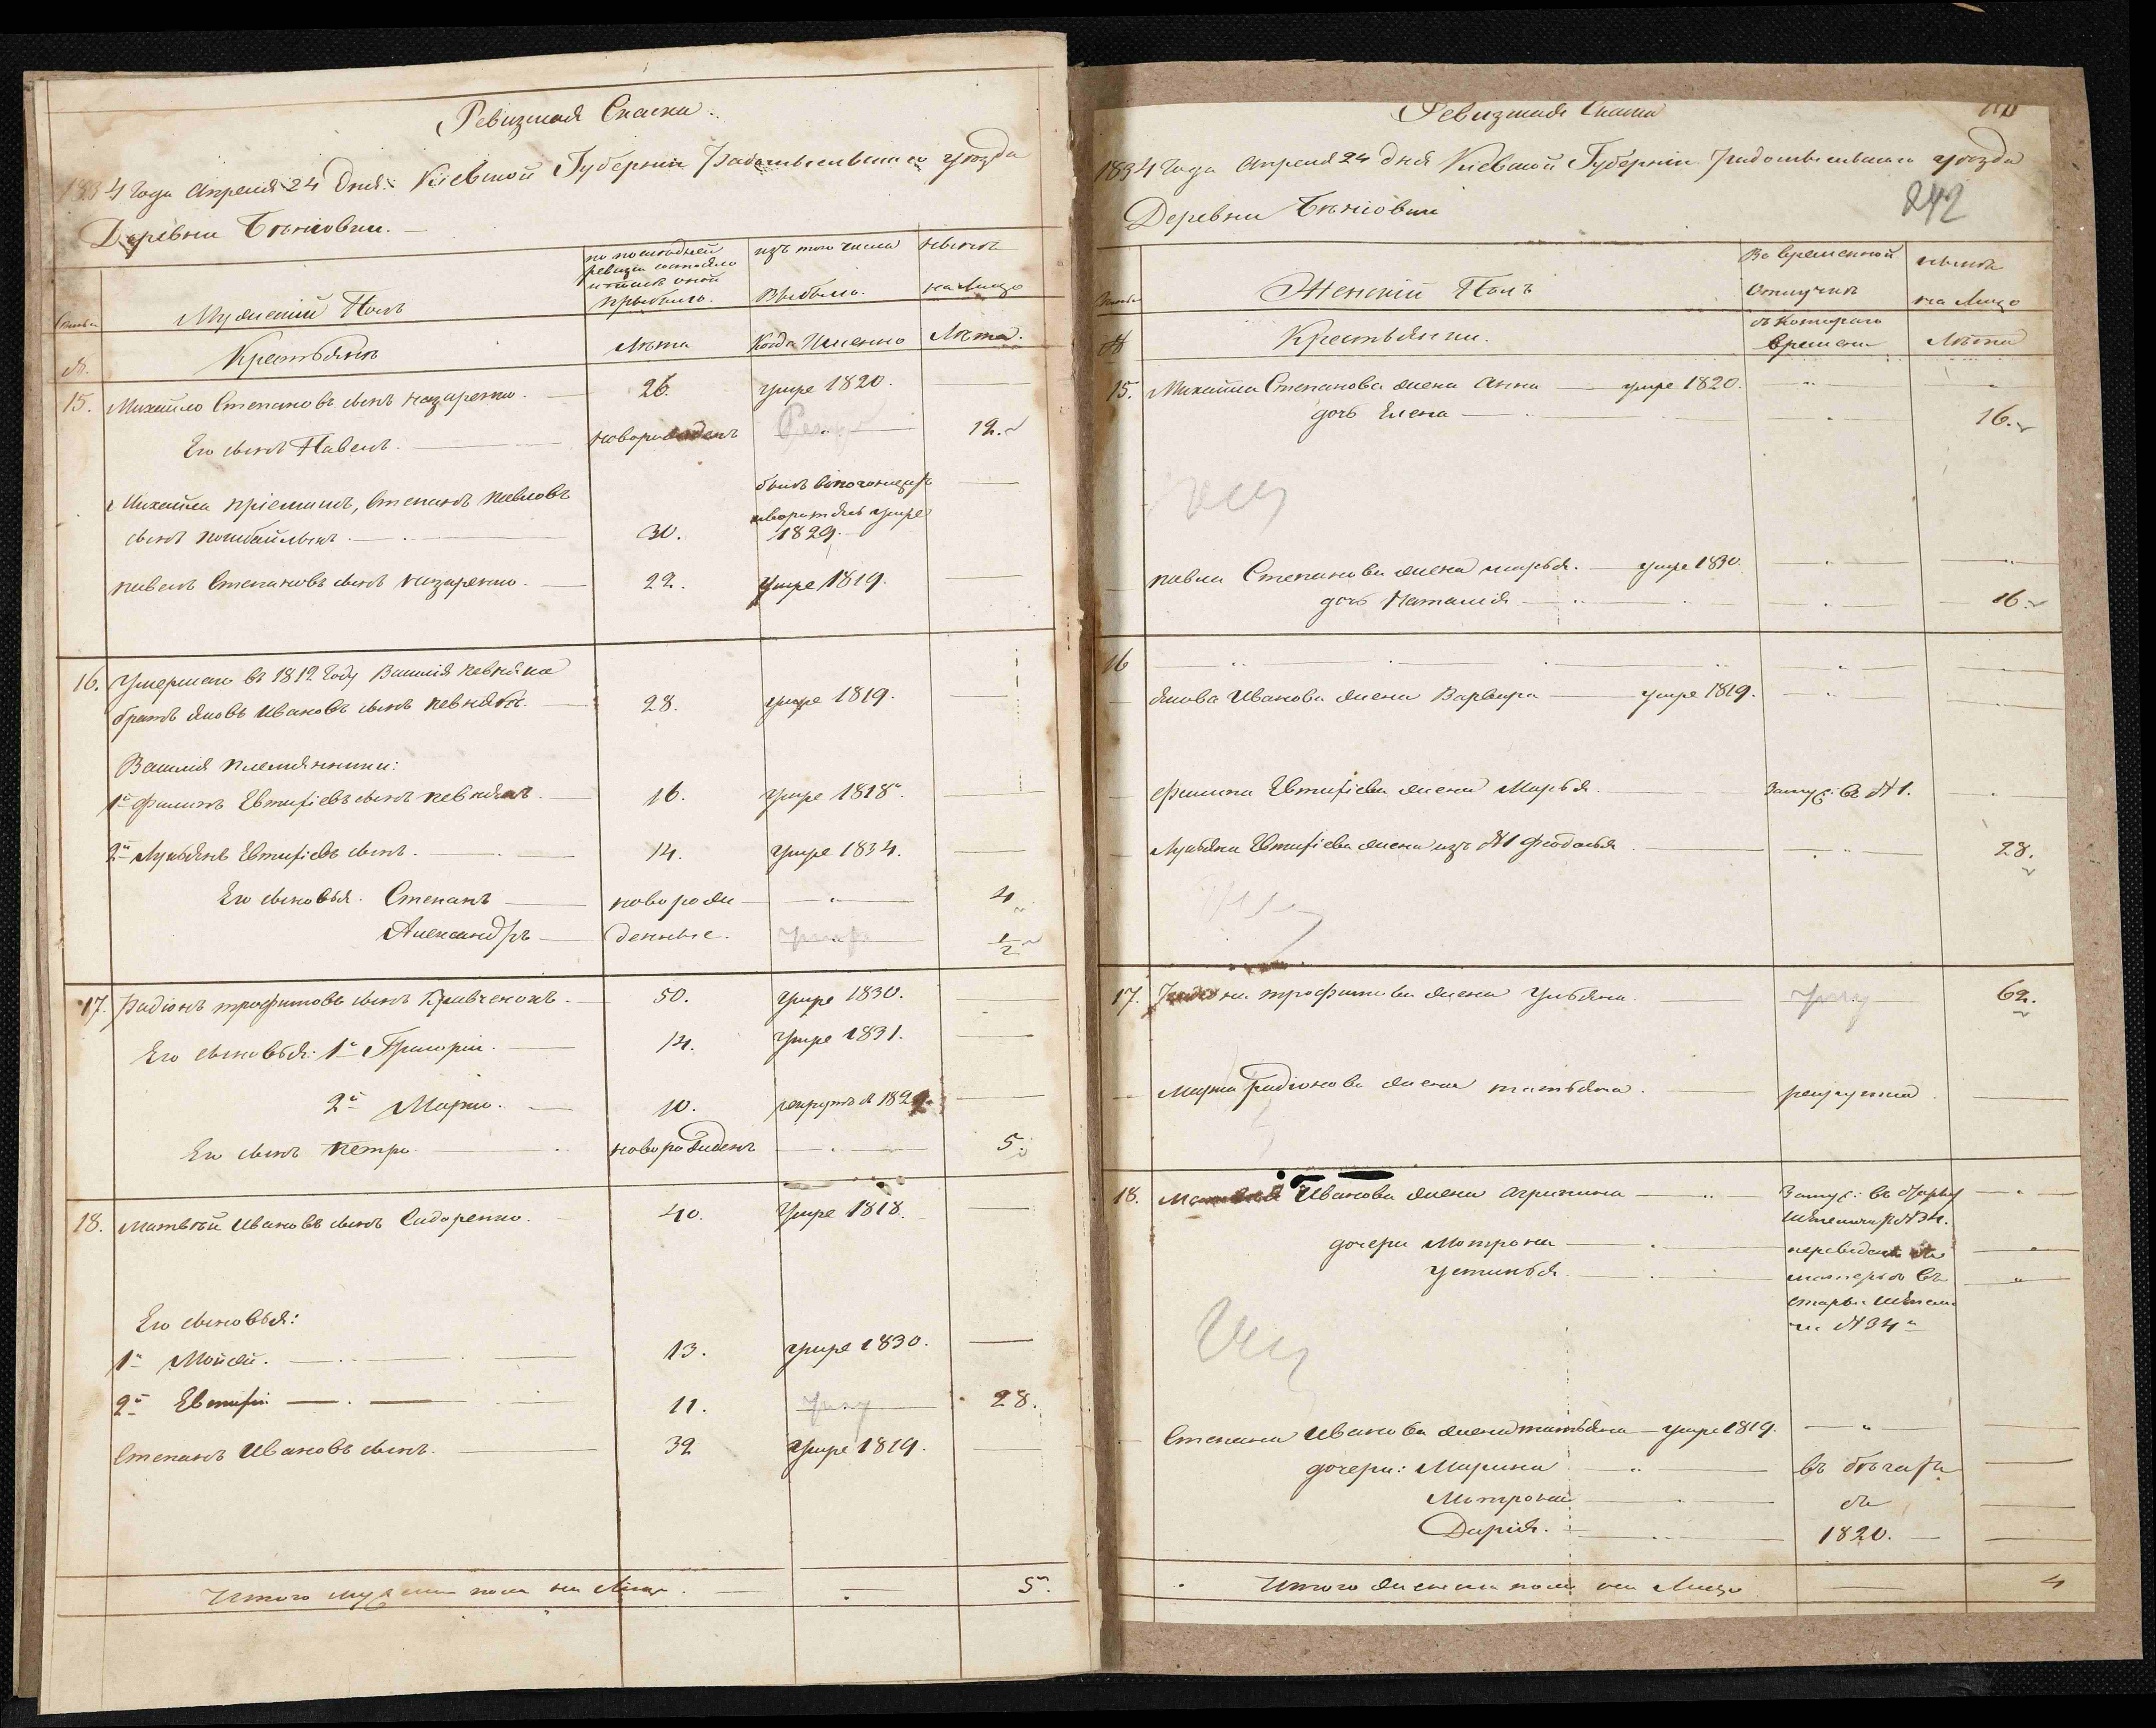 Ревизская Сказка
1834 Года Апреля 24 дня Киевской Губернии Радомысльскаго уезда
Деревни
Семьи
Мужеский Полъ
по последней
ревизии состояло
и после оной
прибыло.
изъ того числа
Выбыло.
ныне
на Лицо
№
Крестьяне
Лета
Когда Именно
Лета.
15. Михайло Степановъ сынъ Назаренко. 26. умре 1820.
Его сынъ Павелъ. новорожденъ 12.
Михайла приемышъ, Степанъ Павловъ
сынъ 30.
умре
1829.
Павелъ Степановъ сынъ Назаренко. 22. умре 1819.
16. Умершаго въ 1812 Году Василия Певняка
братъ Яковъ Ивановъ сынъ Певнякъ. 28. умре 1819.
Василия племянники:
1й Филипъ Евтифіевъ сынъ Певнякъ. 16. умре 1818.
2й Лукьянъ Евтифіевъ сынъ. 14. умре 1834.
Его сыновья. Степанъ новорож 4
Александръ денные. 1/2
17. Радіонъ Трофимовъ сынъ Кравченокъ. 50. умре 1830.
Его сыновья: 1й Григорій. 14. умре 1831.
2й Марко. 10. рекрутъ
Его сынъ Петро новорожденъ 5.
18. Матвей Ивановъ сынъ Сидоренко. 40. умре 1818.
Его сыновья:
1й Мойсей. 13. умре 1830.
2й Евтифій 11. 28.
Степанъ Ивановъ сынъ. 32 умре 1819.
Итого мужеска пола на Лицо. 5.
Ревизская Сказка
1834 Года Апреля 24 дня Киевской Губерніи Радомысльскаго уезда
Деревни
242
Семьи
Женскій Полъ
Во временной
отлучке
ныне
на Лицо
№
Крестьянки.
съ котораго
времени
Лета
15. Михайла Степанова жена Анна умре 1820.
дочь Елена 16.
Павла Степанова жена Марья. умре 1830
дочь Наталія 16.
16
Якова Иванова жена Варвара умре 1819.
Филипа Евтифіева жена Марья. Замуж: въ №1.
Лукьяна Евтифіева жена изъ №1 Феодосья 28.
17. Радіона Трофимова жена Ульяна. 62.
Марка Радіонова жена Татьяна. рекрутка
18. Матвея Иванова жена Агрипина Замуж: въ
№34.
дочери Мотрона переведена
Устинья. матерью въ
№34
Степана Иванова жена Татьяна умре 1819.
дочери: Марина въ бегахъ
Мотрона съ
Дарія. 1820.
Итого женска пола на Лицо 4